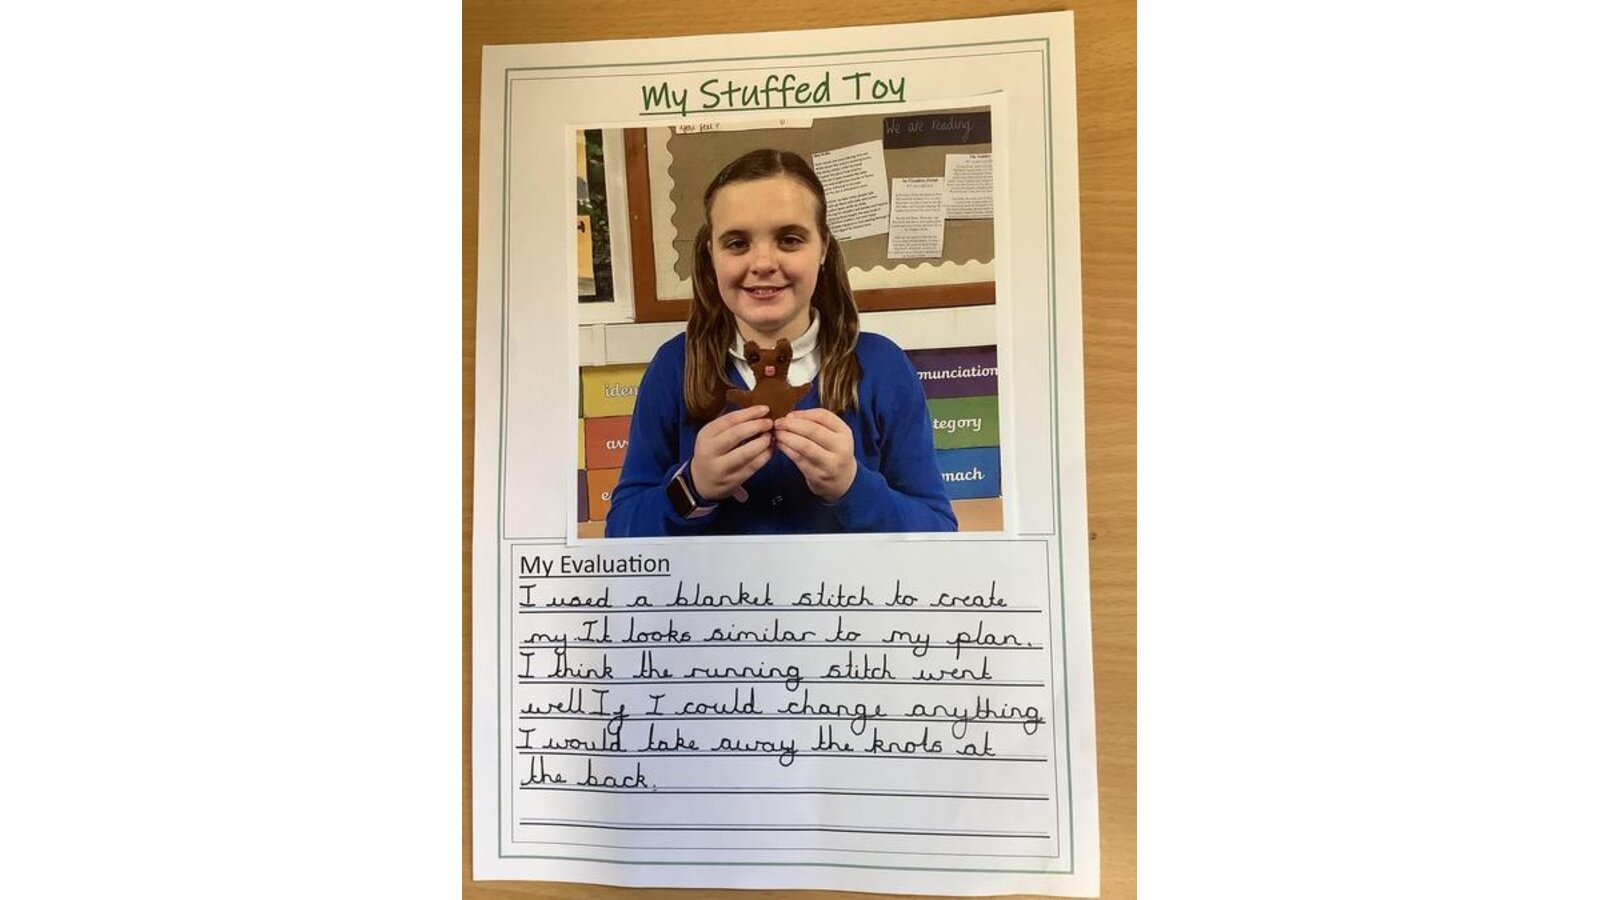 My Stuffed Toy
you feel?
We are reading
iden
onunciation
av
tegory
e
mach
My Evaluation
I used a blanket stitch to create
my.It looks similar to my plan.
I think the running stitch went
well If I could change anything
I would take away the knots at
the back.